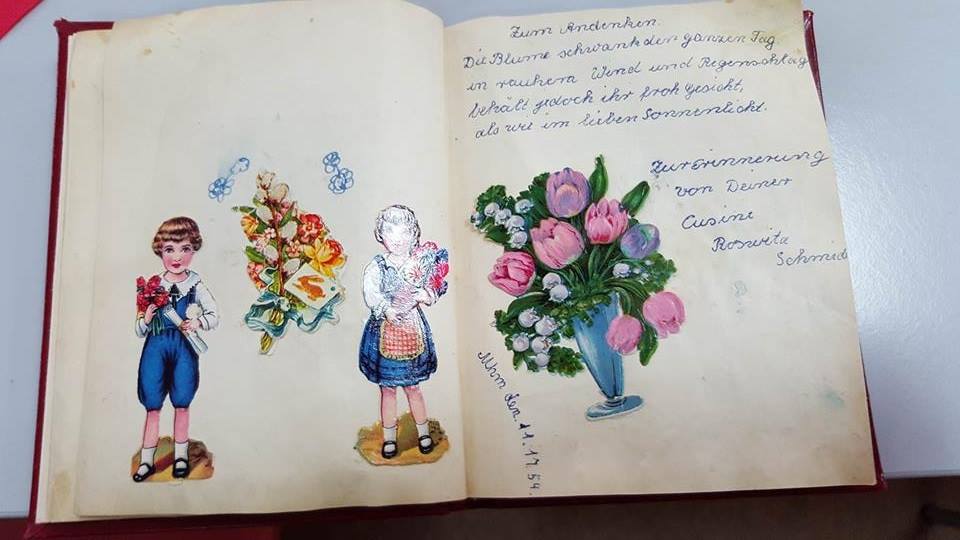 Zum Andenken.
Die Blume schwankt den ganzen Tag
in rauhem Wind und Regenschlag
behält jedoch ihr froh Gesicht,
als wie im lieben Sonnenlicht.
Zur Erinnerung
von Deiner
Cusine
Roswita
Schmid
den 11. 17. 54.